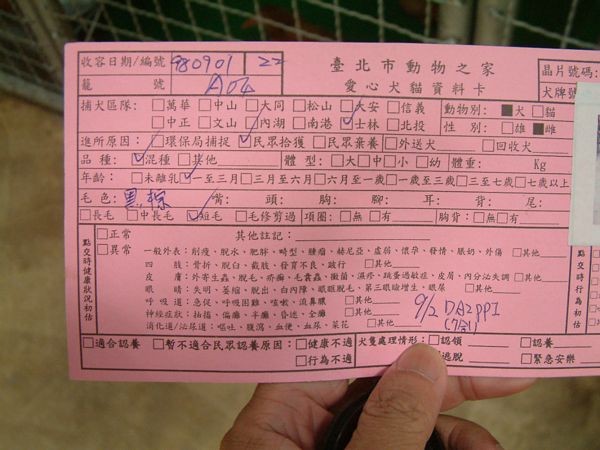 收容日期/編號 980901 22 臺北市動物之家 晶片號碼:
籠號 A04 愛心犬貓資料卡 犬牌號
捕犬區隊: □萬華 □中山 □大同 □松山 □大安 □信義 動物別: ■犬 □貓
□中正 □文山 □內湖 □南港 ☑士林 □北投 性別: □雄 ■雌
進所原因: □環保局捕捉 ☑民眾拾獲 □民眾棄養 □外送犬 □回收犬
品種: ☑混種 □其他 體型: □大 □中 □小 □幼 體重: Kg
年齡: □未離乳 ☑一至三月 □三月至六月 □六月至一歲 □一歲至三歲 □三至七歲 □七歲以上
毛色: 黑棕 嘴: 頭: 胸: 腳: 耳: 背: 尾:
□長毛 □中長毛 ☑短毛 □毛修剪過 項圈: □無 □有 胸背: □無 □有
點交時健康狀況初估
□正常 其他註記:
□異常 一般外表: 削瘦、脫水、肥胖、畸型、腫瘤、赫尼亞、虛弱、懷孕、發情、脹奶、外傷 □其他
四肢: 骨折、脫臼、截肢、發育不良、跛行 □其他
皮膚: 外寄生蟲、脫毛、疥癬、毛囊蟲、黴菌、濕疹、跳蚤過敏症、皮屑、內分泌失調 □其他
眼睛: 失明、萎縮、脫出、白內障、眼瞼脫毛、第三眼瞼增生、眼屎 □其他
呼吸道: 急促、呼吸困難、咳嗽、流鼻膿 □其他
神經症狀: 抽搐、偏癱、半癱、昏迷、全癱 □其他
消化道/泌尿道: 嘔吐、腹瀉、血便、血尿、菜花 □其他
9/2 DA2PPI
(7合1)
□適合認養 □暫不適合民眾認養原因: □健康不適 犬隻處理情形: □認領 □認養
□行為不適 逃脫 □緊急安樂